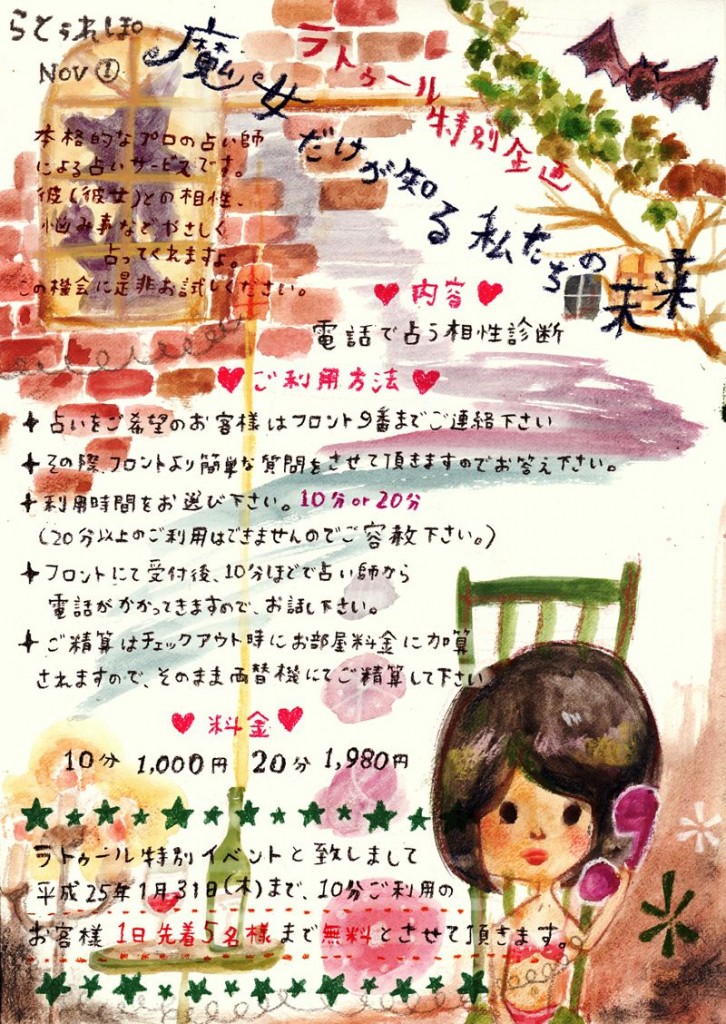 らとぅれぽ
Nov ①
ラトゥール特別企画
魔女だけが知る私たちの未来
本格的なプロの占い師
による占いサービスです。
彼(彼女)との相性、
悩み事などやさしく
占ってくれますよ。
この機会に是非お試しください。
♥内容♥
電話で占う相性診断
♥ご利用方法♥
✦占いをご希望のお客様はフロント9番までご連絡下さい
✦その際、フロントより簡単な質問をさせて頂きますのでお答え下さい。
✦利用時間をお選び下さい。10分or20分
(20分以上のご利用はできませんのでご容赦下さい。)
✦フロントにて受付後、10分ほどで占い師から
電話がかかってきますので、お話し下さい。
✦ご精算はチェックアウト時にお部屋料金に加算
されますので、そのまま両替機にてご精算して下さい
♥料金♥
10分 1,000円 20分 1,980円
ラトゥール特別イベントと致しまして
平成25年1月31日(木)まで、10分ご利用の
お客様1日先着5名様まで無料とさせて頂きます。